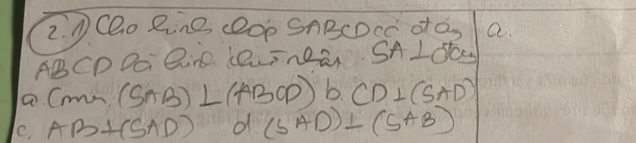 2.1) Cho hình chóp SABCD có đáy a.
ABCD là hình chữ nhật SA ⊥ đáy
a. Cmr (SAB) ⊥ (ABCD) b. CD ⊥ (SAD)
c. AB ⊥ (SAD) d (SAD) ⊥ (SAB)